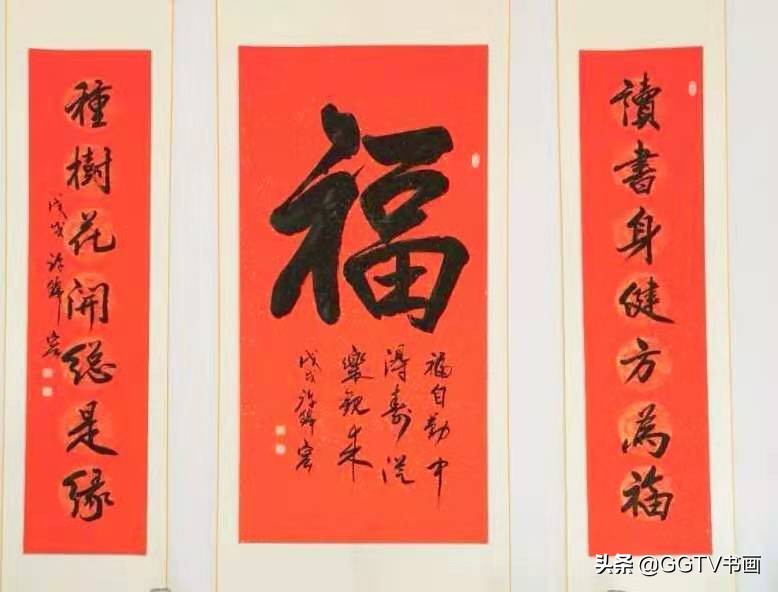 讀書身健方為福
福
福自勤中
得壽從
樂觀來
戊戌
種樹花開總是緣
戊戌
头条 @GGTV书画